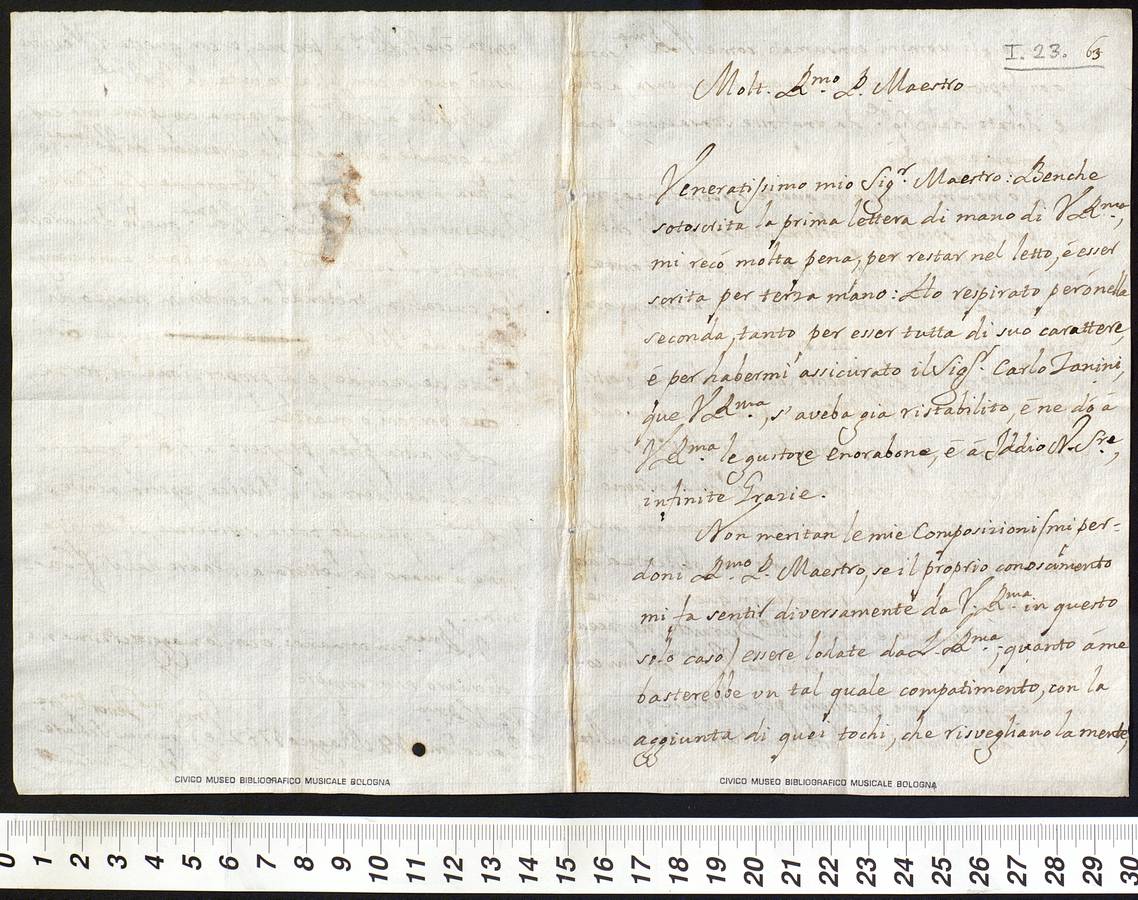 I. 23. 63
Molt. Rmo. P. Maestro
Veneratissimo mio Sigr. Maestro: Benche
sotoscrita la prima lettera di mano di V Rma,
mi recó molta pena, per restar nel letto, é esser
scrita per terza mano: Ho respirato peró nella
seconda, tanto per esser tutta di suo carattere,
é per habermi assicurato il Sigr. Carlo Zanini,
que V Rma, s'aveba gia ristabilito, é ne dó á
V Rma. le gustose enorabone, é á Iddio N. Sre,
infinite Grazie.
Non meritan le mie Composizioni (mi per=
doni Rmo. P. Maestro, se il proprio conoscimento
mi fa sentir diversamente da V. Rma. in questo
solo caso) essere lodate da V. Rma; quanto á me
basterebbe un tal quale compatimento, con la
aggiunta di quei tochi, che risvegliano la mente,
CIVICO MUSEO BIBLIOGRAFICO MUSICALE BOLOGNA
CIVICO MUSEO BIBLIOGRAFICO MUSICALE BOLOGNA
0 1 2 3 4 5 6 7 8 9 10 11 12 13 14 15 16 17 18 19 20 21 22 23 24 25 26 27 28 29 30